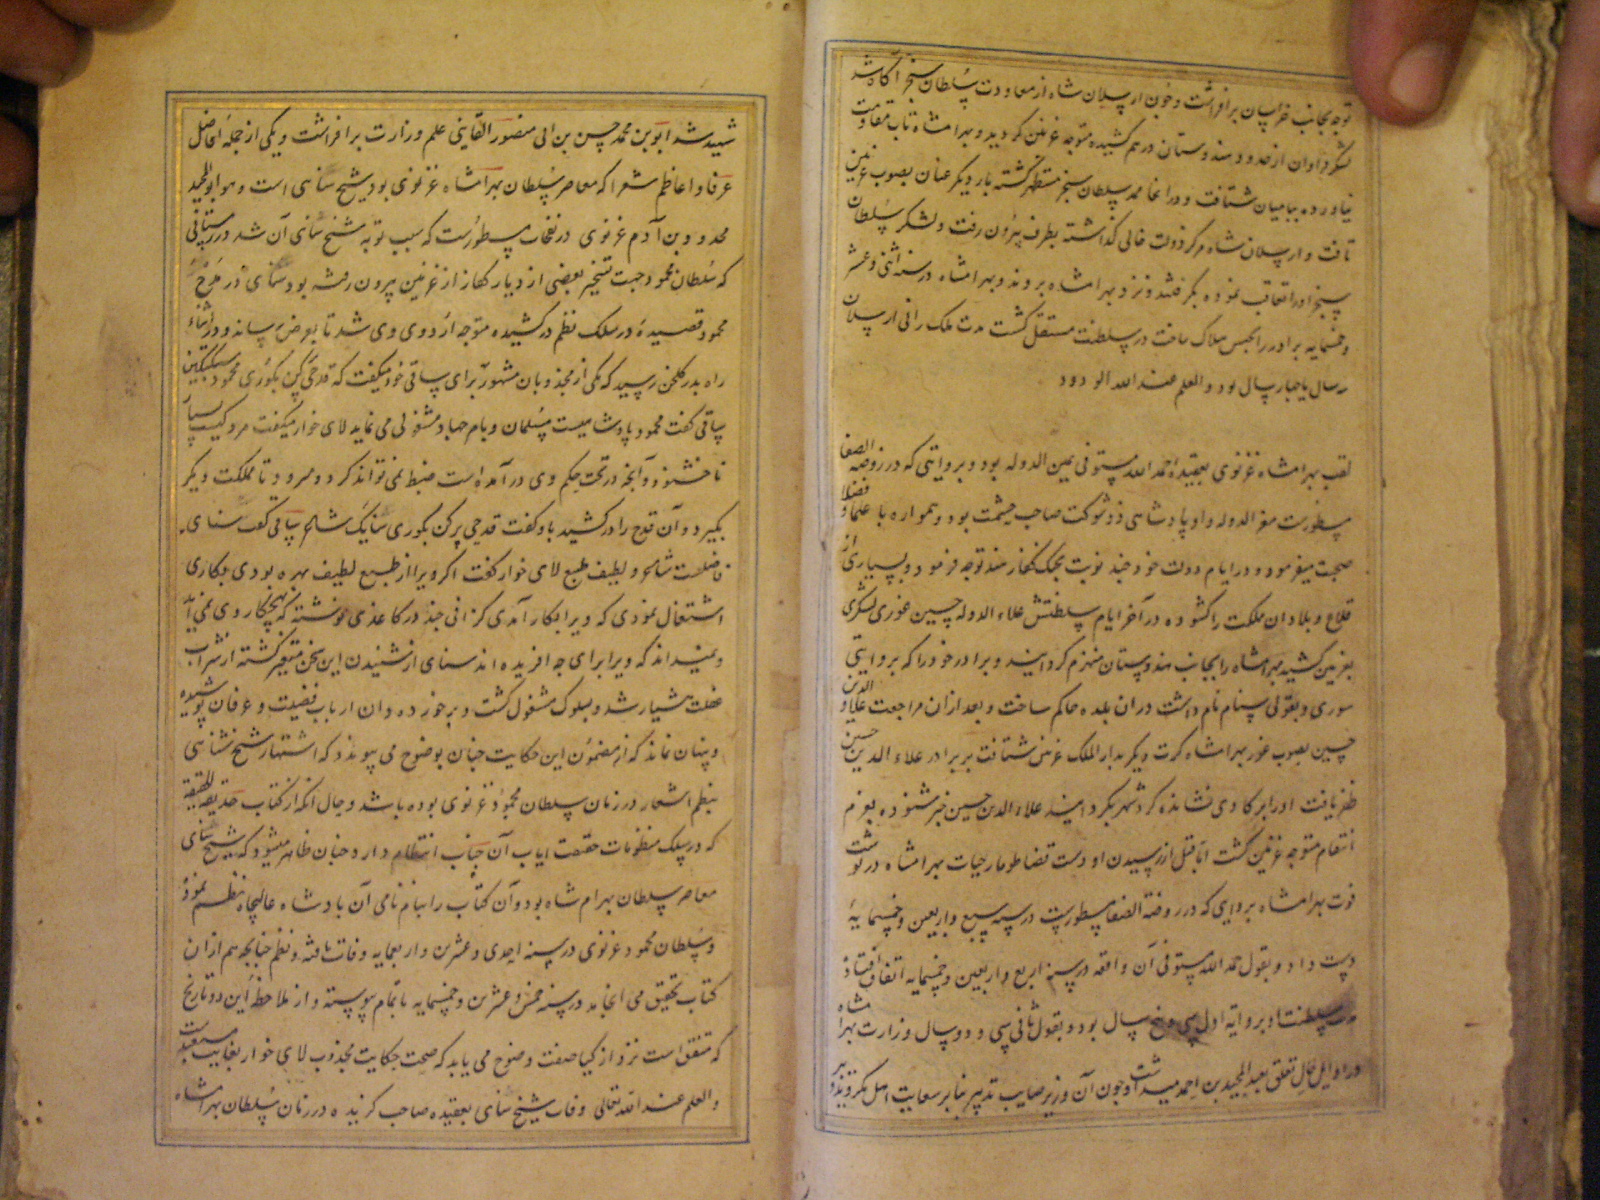 توجه بجانب خراسان برافراشت و چون ارسلان شاه از معاودت سلطان سنجر آگاه شد
لشکر فراوان از حدود هندوستان در هم کشیده متوجه غزنین گردید و بهرامشاه تاب مقاومت
نیاورده ببامیان شتافت و در آنجا بمدد سلطان سنجر مستظهر گشته بار دیگر عنان بصوب غزنین
تافت و ارسلان شاه مرکز دولت خالی گذاشته بطرفی بیرون رفت و لشکر سلطان
سنجر او را تعاقب نموده بگرفتند و نزد بهرامشاه بردند و بهرامشاه در سنه اثنی و عشر
و خمسمایه برادر را بحبس هلاک ساخت در سلطنت مستقل گشت مدت ملک رانی ارسلان
سه سال یا چهار سال بود و العلم عند الله الودود
لقب بهرامشاه غزنوی بعقیده احمد الله مستوفی یمین الدوله بود و بروایتی که در روضه الصفا
مسطورست معز الدوله و او پادشاهی ذوشوکت صاحب حشمت بود و همواره با علما و فضلا
صحبت میفرمود و در ایام دولت خود چند نوبت بجنگ کفار هند توجه فرمود و بسیاری از
قلاع و بلاد ان مملکت را کشوده در آخر ایام سلطنتش علاء الدوله حسین غوری لشکری
بغزنین کشید بهرامشاه را بجانب هندوستان منهزم گردانید و برادر خود را که بروایتی
سوری و بقولی سام نام داشت در ان بلده حاکم ساخت و بعد از ان مراجعت علاء الدین
حسین بصوب غور بهرامشاه کرت دیگر بدار الملک غزنین شتافت بر برادر علاء الدین حسین
ظفر یافت او را بر گاوی نشانده گرد شهر بگردانید علاء الدین حسین خبر شنوده بعزم
انتقام متوجه غزنین گشت اما قبل از رسیدن او دست قضا طومار حیات بهرامشاه در نوشت
فوت بهرامشاه بروایتی که در روضة الصفا مسطورست در سنه سبع و اربعین و خمسمایة
دست داد و بقول حمد الله مستوفی آن واقعه در سنه اربع و اربعین و خمسمایه اتفاق افتاد
مدت سلطنت او بروایه اول سی و پنج سال بود و بقول ثانی سی و دو سال وزارت بهرامشاه
در اوایل حال تعلق بعبد المجید بن احمد میداشت و چون آن وزیر صایب تدبیر بنا بر سعایت اهل مکر و تزویر
شهید شد ابو بن محمد حسن بن ابی منصور القاینی علم وزارت برافراشت و یکی از جمله افاضل
عرفا و اعاظم شعرا که معاصر سلطان بهرامشاه غزنوی بود شیخ سنایی است و هو ابو المجد
مجدود بن آدم غزنوی در نفحات مسطورست که سبب توبه شیخ سنای آن شد در زمستانی
که سلطان محمود جهت تسخیر بعضی از دیار کفار از غزنین بیرون رفته بود سنای در مدح
محمود قصیدهٔ در سلک نظم در کشیده متوجه اردوی وی شد تا بعرض رساند و در اثناء
راه بدر گلخن رسید که یکی از مجذوبان مشهور برای ساقی خود میگفت که قدحی پر کن بکوری محمود سبکتکین
ساقی گفت محمود پادشاهیست مسلمان و بامر جهاد مشغولی می نماید لای خوار میگفت مردکیست بسیار
ناخشنود و آنچه در تحت حکم وی در آمده است ضبط نمی تواند کرد و میرود تا مملکت دیگر
بگیرد و آن قدح را در کشید باز گفت قدحی پر کن بکوری سنایک شاعر ساقی گفت سنای
فاضلست شاعر و لطیف طبع لای خوار گفت اگر ویرا از طبع لطیف بهره بودی بکاری
اشتغال نمودی که ویرا بکار آمدی گزافی چند در کاغذی نوشته که هیچ کار وی نمی آید
و نمیداند که ویرا برای چه آفریده اند سنای از شنیدن این سخن متغیر گشته از شراب
غفلت هشیار شد و بسلوک مشغول گشت و بر خرده دان ارباب فضیلت و عرفان پوشیده
و پنهان نماند که از مضمون این حکایت چنان بوضوح می پیوندد که اشتهار شیخ سنایی
بنظم اشعار در زمان سلطان محمود غزنوی بوده باشد و حال انکه از کتاب حدیقه الحقیقة
که در سلک منظومات حقیقت ایاب آن جناب انتظام دارد چنان ظاهر میشود که شیخ سنای
معاصر سلطان بهرام شاه بود و آن کتاب را بنام نامی آن پادشاه عالیجاه نظم نمود
و سلطان محمود غزنوی در سنه احدی و عشرین و اربعمایه وفات یافته و نظم چنانچه هم از ان
کتاب تحقیق می انجامد در سنه خمس و عشرین و خمسمایه باتمام پیوسته و از ملاحظه این دو تاریخ
که متفق است نزد از کیا صفت وضوح می یابد که صحت حکایت مجذوب لای خوار بغایت مستبعدست
و العلم عند الله تعالی وفات شیخ سنای بعقیده صاحب گزیده در زمان سلطان بهرامشاه